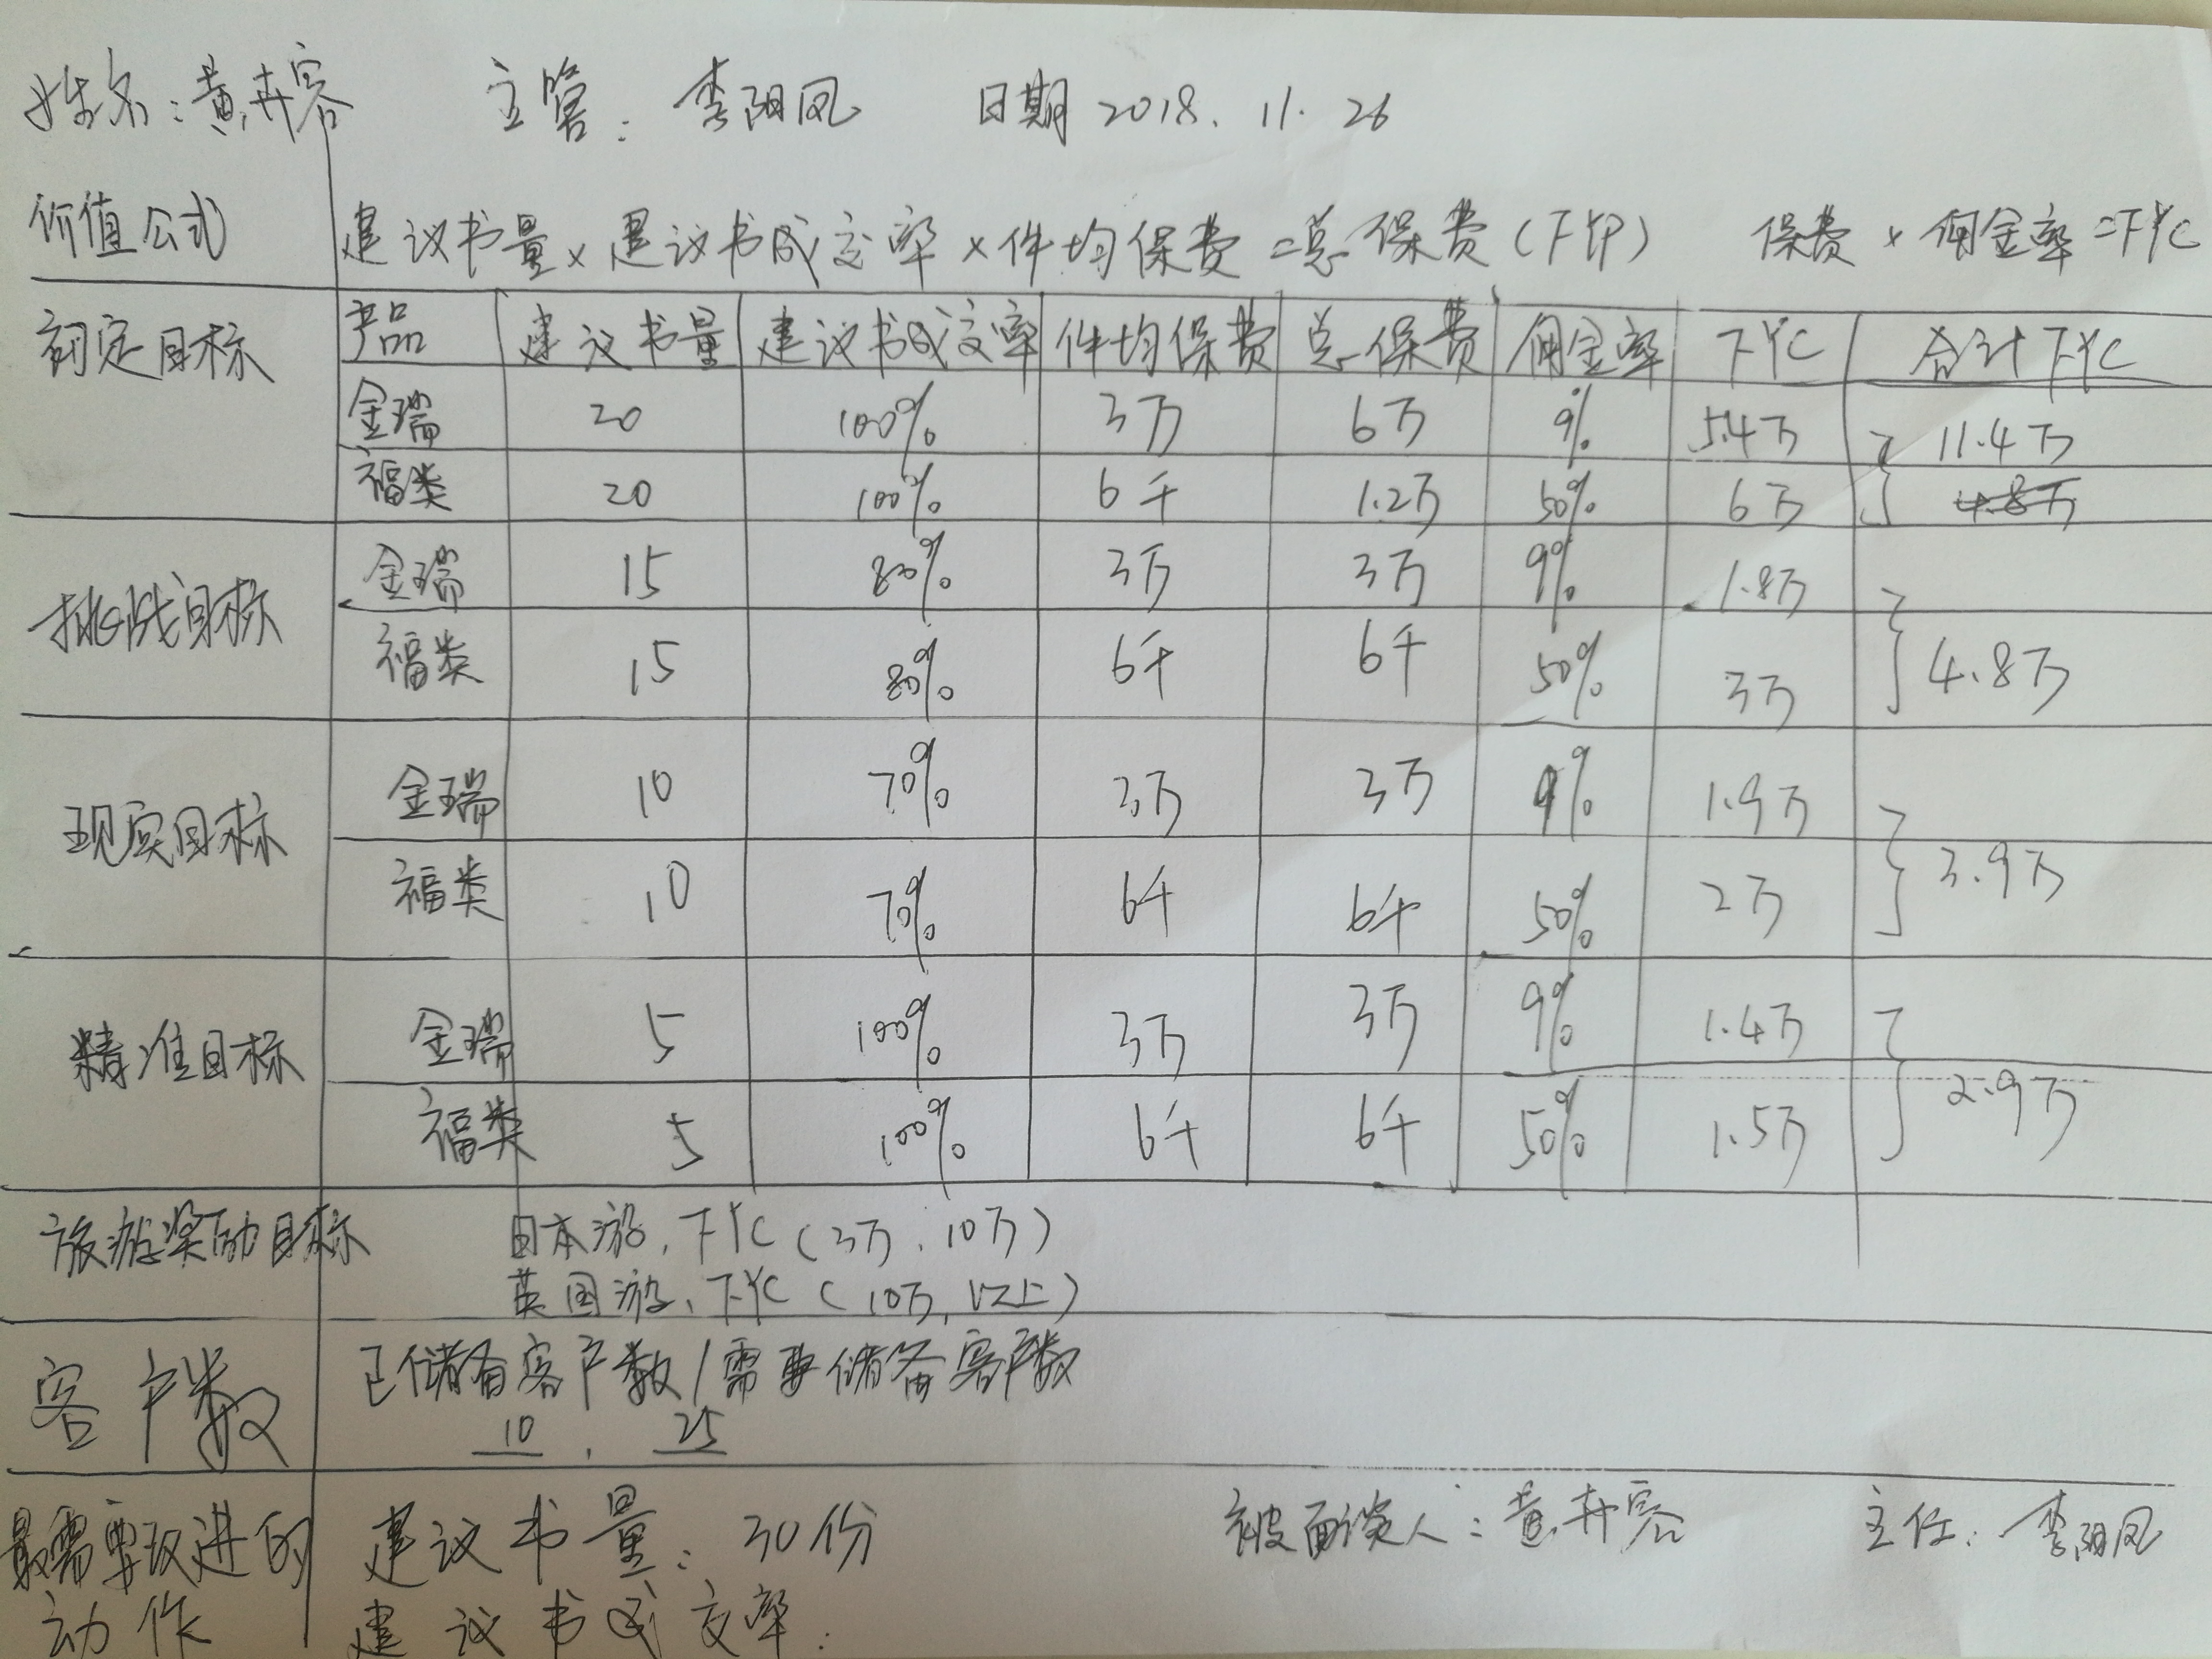 姓名：黄卉容 主管：李阳凤 日期 2018.11.26
价值公式 建议书量×建议书成交率×件均保费=总保费(FYP) 保费×佣金率=FYC
初定目标 产品 建议书量 建议书成交率 件均保费 总保费 佣金率 FYC 合计FYC
金瑞 20 100% 3万 6万 9% 5.4万 11.4万
福类 20 100% 6千 1.2万 50% 6万 4.8万
挑战目标
金瑞 15 80% 3万 3万 9% 1.8万
福类 15 80% 6千 6千 50% 3万 4.8万
现实目标
金瑞 10 70% 3万 3万 9% 1.9万
福类 10 70% 6千 6千 50% 2万 3.9万
精准目标
金瑞 5 100% 3万 3万 9% 1.4万
福类 5 100% 6千 6千 50% 1.5万 2.9万
旅游奖励目标 日本游，FYC(3万，10万)
英国游，FYC(10万，以上)
客户数 已储备客户数/需要储备客户数
10，25
最需要改进的 建议书量：30份 被面谈人：黄卉容 主任：李阳凤
动作 建议书成交率：